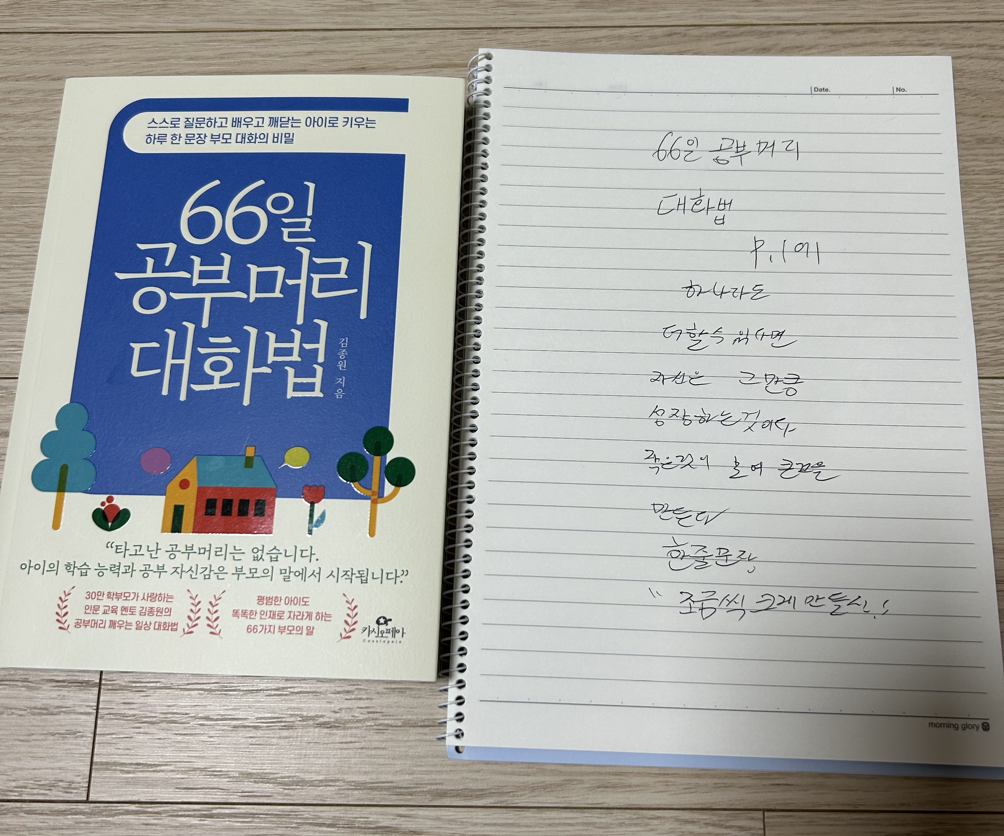 스스로 질문하고 배우고 깨닫는 아이로 키우는
하루 한 문장 부모 대화의 비밀
66일
공부머리
대화법
김종원 지음
“타고난 공부머리는 없습니다.
아이의 학습 능력과 공부 자신감은 부모의 말에서 시작됩니다.”
30만 학부모가 사랑하는
인문 교육 멘토 김종원의
공부머리 깨우는 일상 대화법
평범한 아이도
똑똑한 인재로 자라게 하는
66가지 부모의 말
카시오페아
Cassiopeia
Date.
No.
66일 공부머리
대화법
하나라도
더할수 있다면
자신은 그만큼
성장하는것이다
작은것이 모여 큰것을
만든다
한줄문장,
" 조금씩 크게 만들
morning glory